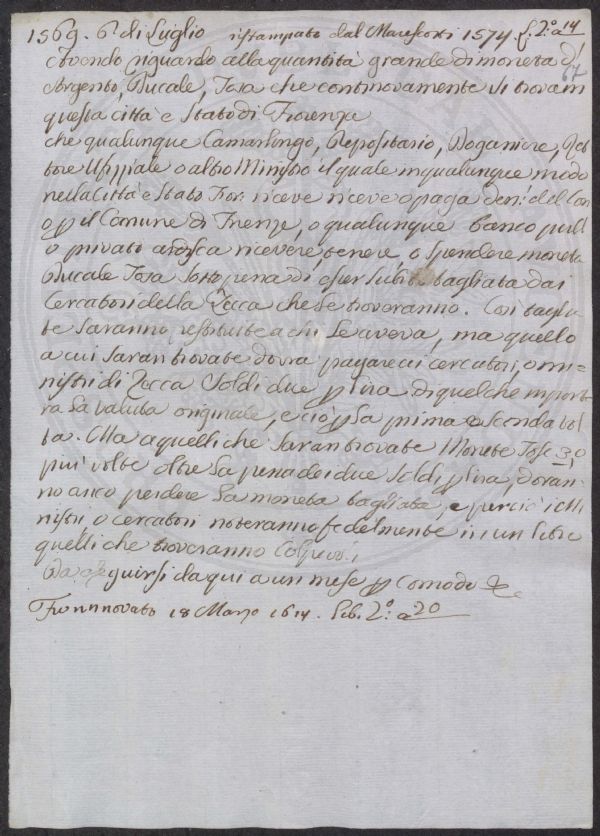 1569. 6 di Luglio ristampato dal Marescotti 1574. L. 2.º a 14
67
Avendo riguardo alla quantità grande di moneta d'
Argento, Ducale, Tosa che continovamente si trova in
questa città e Stato di Fiorenza
che qualunque Camarlingo, Depositario, Doganiere, Ret
tore Uffiziale o altro Ministro il quale in qualunque modo
nella Città e Stato Fior: riceve riceve o paga den: del
o p il Comune di Firenze, o qualunque banco pubb
o privato ardisca ricevere, tenere, o spendere moneta
Ducale Tosa sotto pena di esser subito tagliata dai
Cercatori della Zecca che se trovoranno. Così taglia
te saranno restituite a chi le aveva, ma quello
a cui saran trovate dovrà pagare ai cercatori, o mi=
nistri di Zecca Soldi due p lira di quel che import
rà la valuta originale, e ciò p la prima o seconda vol
ta. Ma a quelli che saran trovate Monete Tose 3, o
più volte oltre la pena dei due soldi p lira, doran
no anco perdere la moneta tagliata, e perciò i Mi
nistri o cercatori noteranno fedelmente in un libro
quelli che trovoranno
Da eseguirsi da qui a un mese p comodo &
Fu rinnovato 18 Marzo 1614. Lib. 2.º a 20